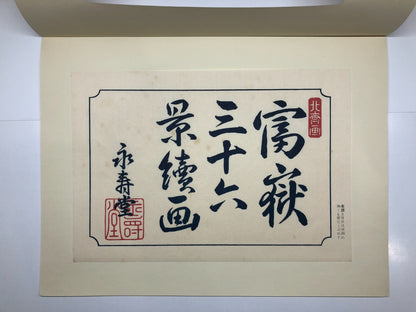 北斎画
富嶽
三十六
景續画
永寿堂